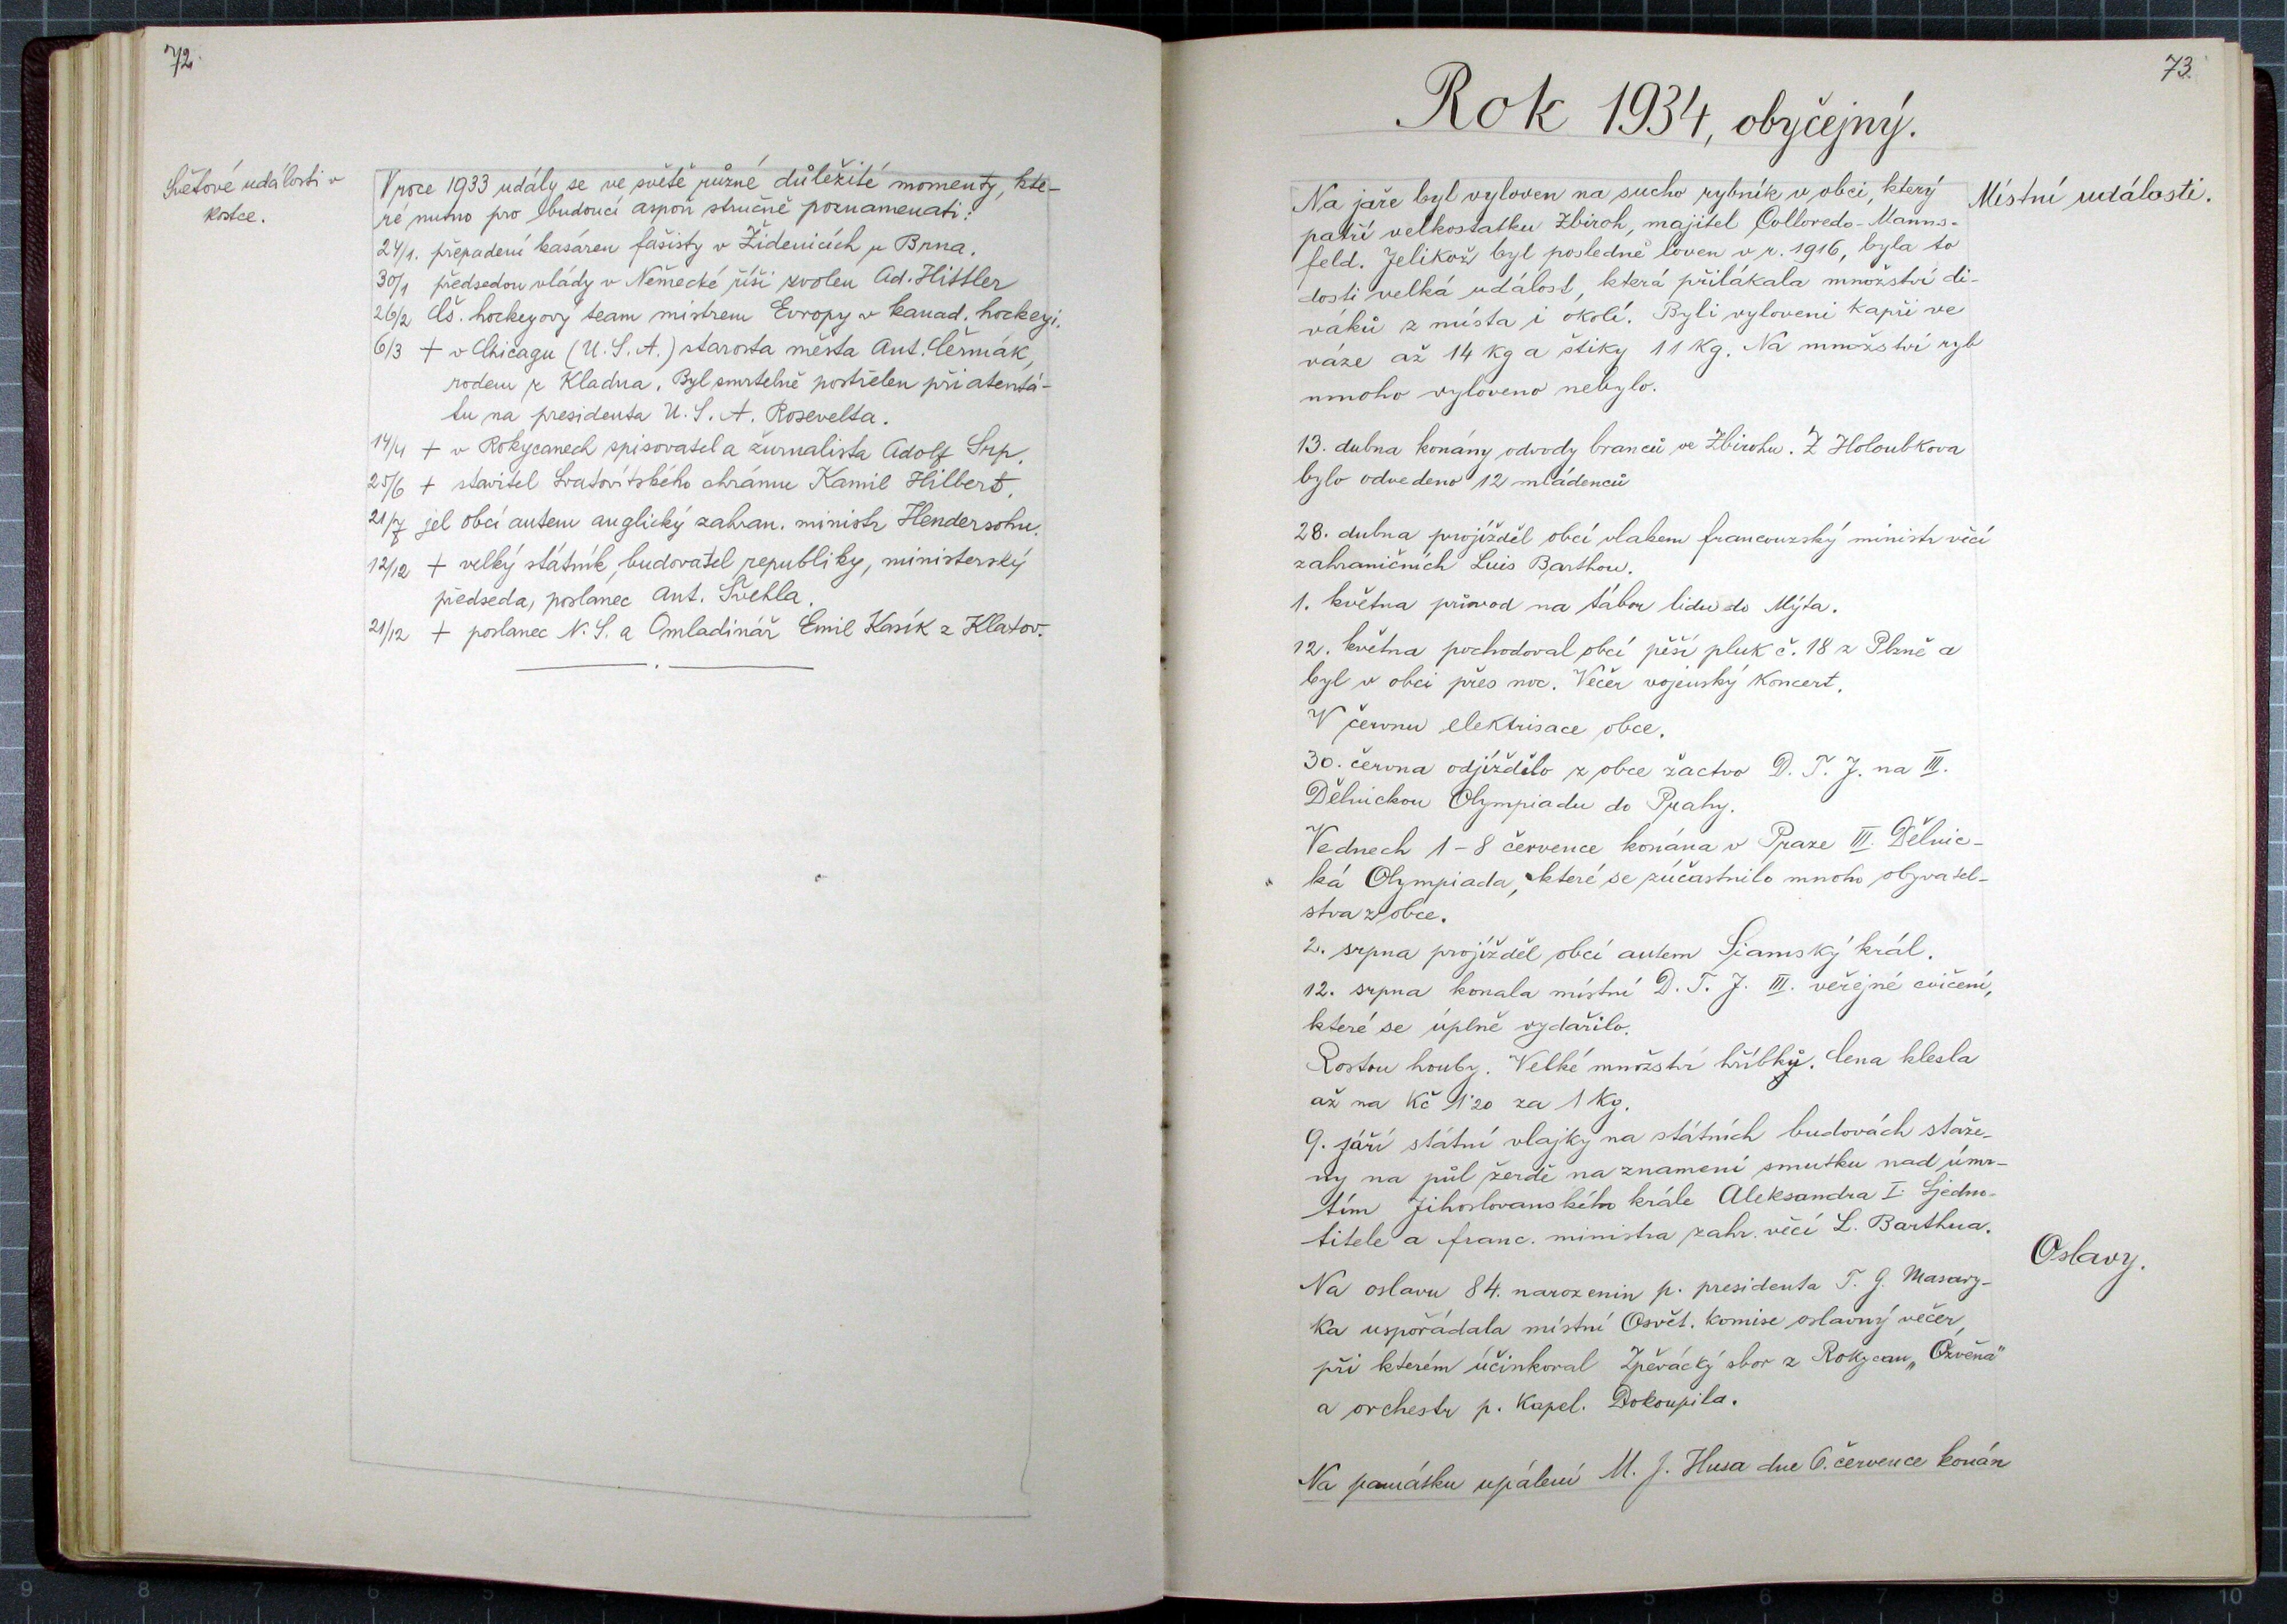 72.
Světové události v
kostce.
V roce 1933 udály se ve světě různé důležité momenty, kte-
ré nutno pro budoucí aspoň stručně poznamenati:
24/1. přepadení kasáren fašisty v Židenicích u Brna.
30/1 předsedou vlády v Německé říši zvolen Ad. Hittler
26/2 Čs. hockeyový team mistrem Evropy v kanad. hockeyi.
6/3 + v Chicagu (U.S.A.) starosta města Ant. Čermák,
rodem z Kladna. Byl smrtelně postřelen při atentá-
tu na presidenta U.S.A. Rosevelta.
14/4 + v Rokycanech spisovatel a žurnalista Adolf Srp.
25/6 + stavitel Svatovítského chrámu Kamil Hilbert.
21/7 jel obcí autem anglický zahran. ministr Hendersohn.
12/12 + velký státník, budovatel republiky, ministerský
předseda, poslanec Ant. Švehla.
21/12 + poslanec N.S. a Omladinář Emil Kasík z Klatov.
73.
Rok 1934, obyčejný.
Místní události.
Na jaře byl vyloven na sucho rybník v obci, který
patří velkostatku Zbiroh, majitel Colloredo-Manns-
feld. Jelikož byl posledně loven v r. 1916, byla to
dosti velká událost, která přilákala množství di-
váků z místa i okolí. Byli vyloveni kapři ve
váze až 14 kg a štiky 11 kg. Na množství ryb
mnoho vyloveno nebylo.
13. dubna konány odvody branců ve Zbirohu. Z Holoubkova
bylo odvedeno 12 mládenců
28. dubna projížděl obcí vlakem francouzský ministr věcí
zahraničních Luis Barthou.
1. května průvod na tábor lidu do Mýta.
12. května pochodoval obcí pěší pluk č. 18 z Plzně a
byl v obci přes noc. Večer vojenský koncert.
V červnu elektrisace obce.
30. června odjíždělo z obce žactvo D. T. J. na III.
Dělnickou Olympiadu do Prahy.
Ve dnech 1-8 července konána v Praze III. Dělnic-
ká Olympiada, které se zúčastnilo mnoho obyvatel-
stva z obce.
2. srpna projížděl obcí autem Siamský král.
12. srpna konala místní D. T. J. III. veřejné cvičení,
které se úplně vydařilo.
Rostou houby. Velké množství hříbků. Cena klesla
až na Kč 1·20 za 1 kg.
9. září státní vlajky na státních budovách staže-
ny na půl žerdě na znamení smutku nad úmr-
tím Jihoslovanského krále Aleksandra I. Sjedno-
titele a franc. ministra zahr. věcí L. Barthua.
Oslavy.
Na oslavu 84. narozenin p. presidenta T. G. Masary-
ka uspořádala místní Osvět. komise oslavný večer,
při kterém účinkoval Zpěvácký sbor z Rokycan „Ozvěna"
a orchestr p. kapel. Dokoupila.
Na památku upálení M. J. Husa dne 6. července konán